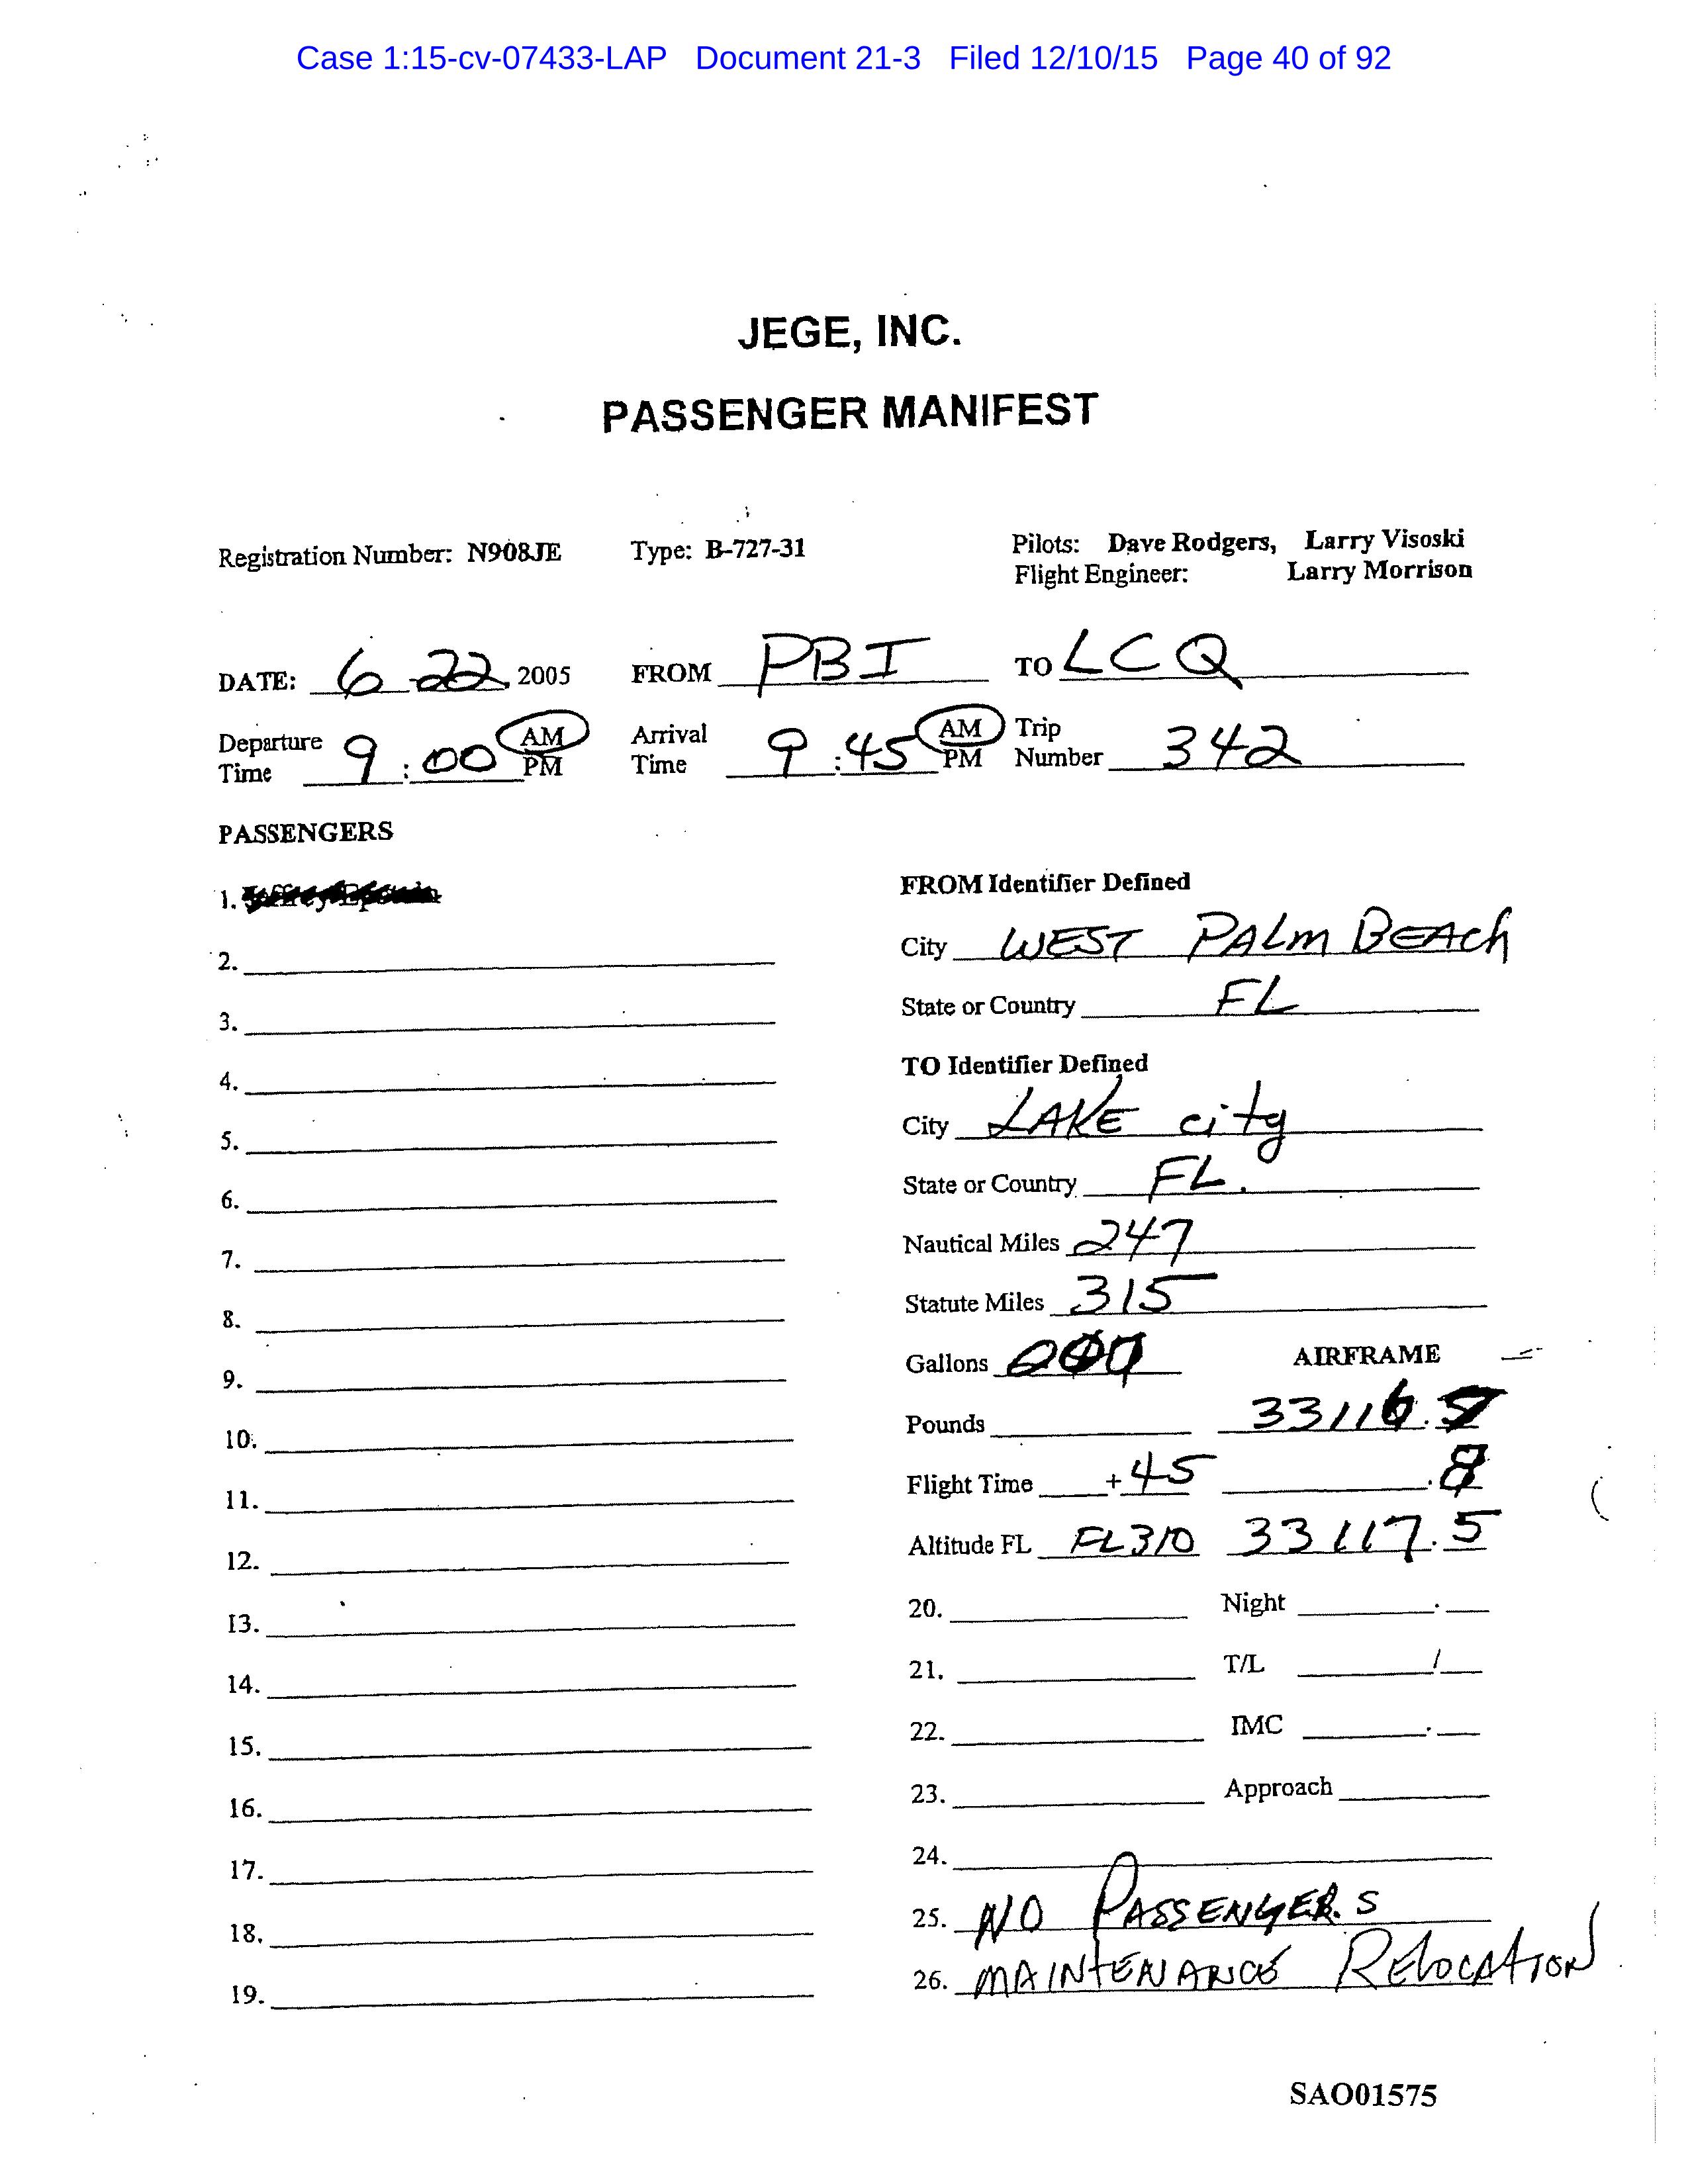 Case 1:15-cv-07433-LAP Document 21-3 Filed 12/10/15 Page 40 of 92
JEGE, INC.
PASSENGER MANIFEST
Registration Number: N908JE Type: B-727-31 Pilots: Dave Rodgers, Larry Visoski
Flight Engineer: Larry Morrison
DATE: 6 22, 2005 FROM PBI TO LCQ
Departure Time 9:00 AM PM Arrival Time 9:45 AM PM Trip Number 342
PASSENGERS
1.
2.
3.
4.
5.
6.
7.
8.
9.
10.
11.
12.
13.
14.
15.
16.
17.
18.
19.
FROM Identifier Defined
City WEST PALM BEACh
State or Country FL
TO Identifier Defined
City LAKE city
State or Country FL.
Nautical Miles 247
Statute Miles 315
Gallons AIRFRAME
Pounds 33116.
Flight Time +45 .8
Altitude FL FL310 33117.5
20. Night .
21. T/L /
22. IMC .
23. Approach
24.
25. NO PASSENGERS
26. MAINTENANCE RELOCATION
SAO01575